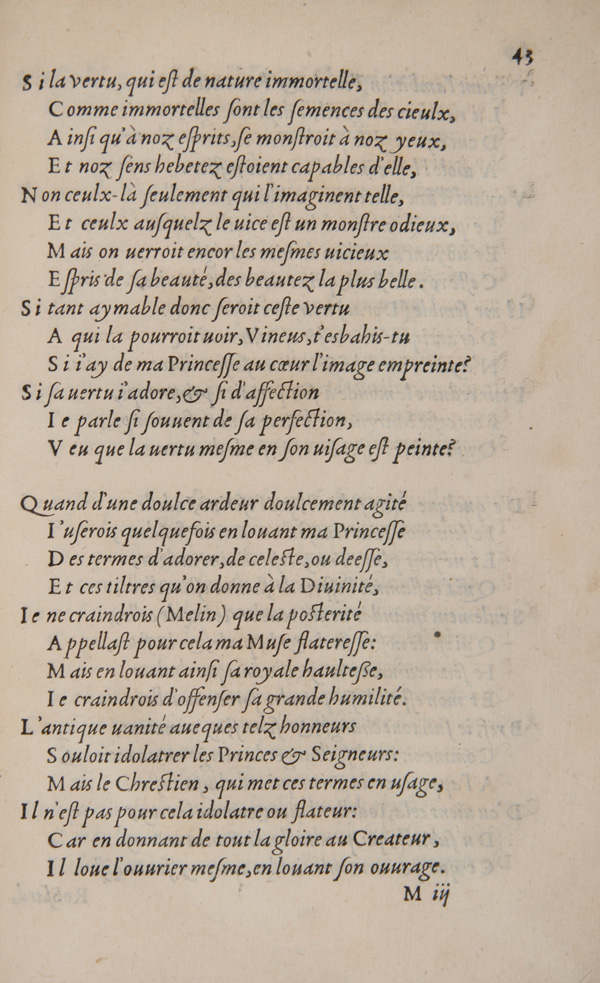 43
Si la vertu, qui eſt de nature immortelle,
Comme immortelles ſont les ſemences des cieulx,
Ainſi qu'à noz eſprits, ſe monſtroit à noz yeux,
Et noz ſens hebetez eſtoient capables d'elle,
Non ceulx-là ſeulement qui l'imaginent telle,
Et ceulx auſquelz le uice eſt un monſtre odieux,
Mais on uerroit encor les meſmes uicieux
Eſpris de ſa beauté, des beautez la plus belle.
Si tant aymable donc ſeroit ceſte vertu
A qui la pourroit uoir, Vineus, t'esbahis-tu
Si i'ay de ma Princeſſe au cœur l'image empreinte?
Si ſa uertu i'adore, & ſi d'affection
Ie parle ſi ſouuent de ſa perfection,
Veu que la uertu meſme en ſon uiſage eſt peinte?
Quand d'une doulce ardeur doulcement agité
I'uſerois quelquefois en louant ma Princeſſe
Des termes d'adorer, de celeſte, ou deeſſe,
Et ces tiltres qu'on donne à la Diuinité,
Ie ne craindrois (Melin) que la poſterité
Appellaſt pour cela ma Muſe flatereſſe:
Mais en louant ainſi ſa royale haulteße,
Ie craindrois d'offenſer ſa grande humilité.
L'antique uanité aueques telz honneurs
Souloit idolatrer les Princes & Seigneurs:
Mais le Chreſtien, qui met ces termes en uſage,
Il n'eſt pas pour cela idolatre ou flateur:
Car en donnant de tout la gloire au Createur,
Il loue l'ouurier meſme, en louant ſon ouurage.
M iij